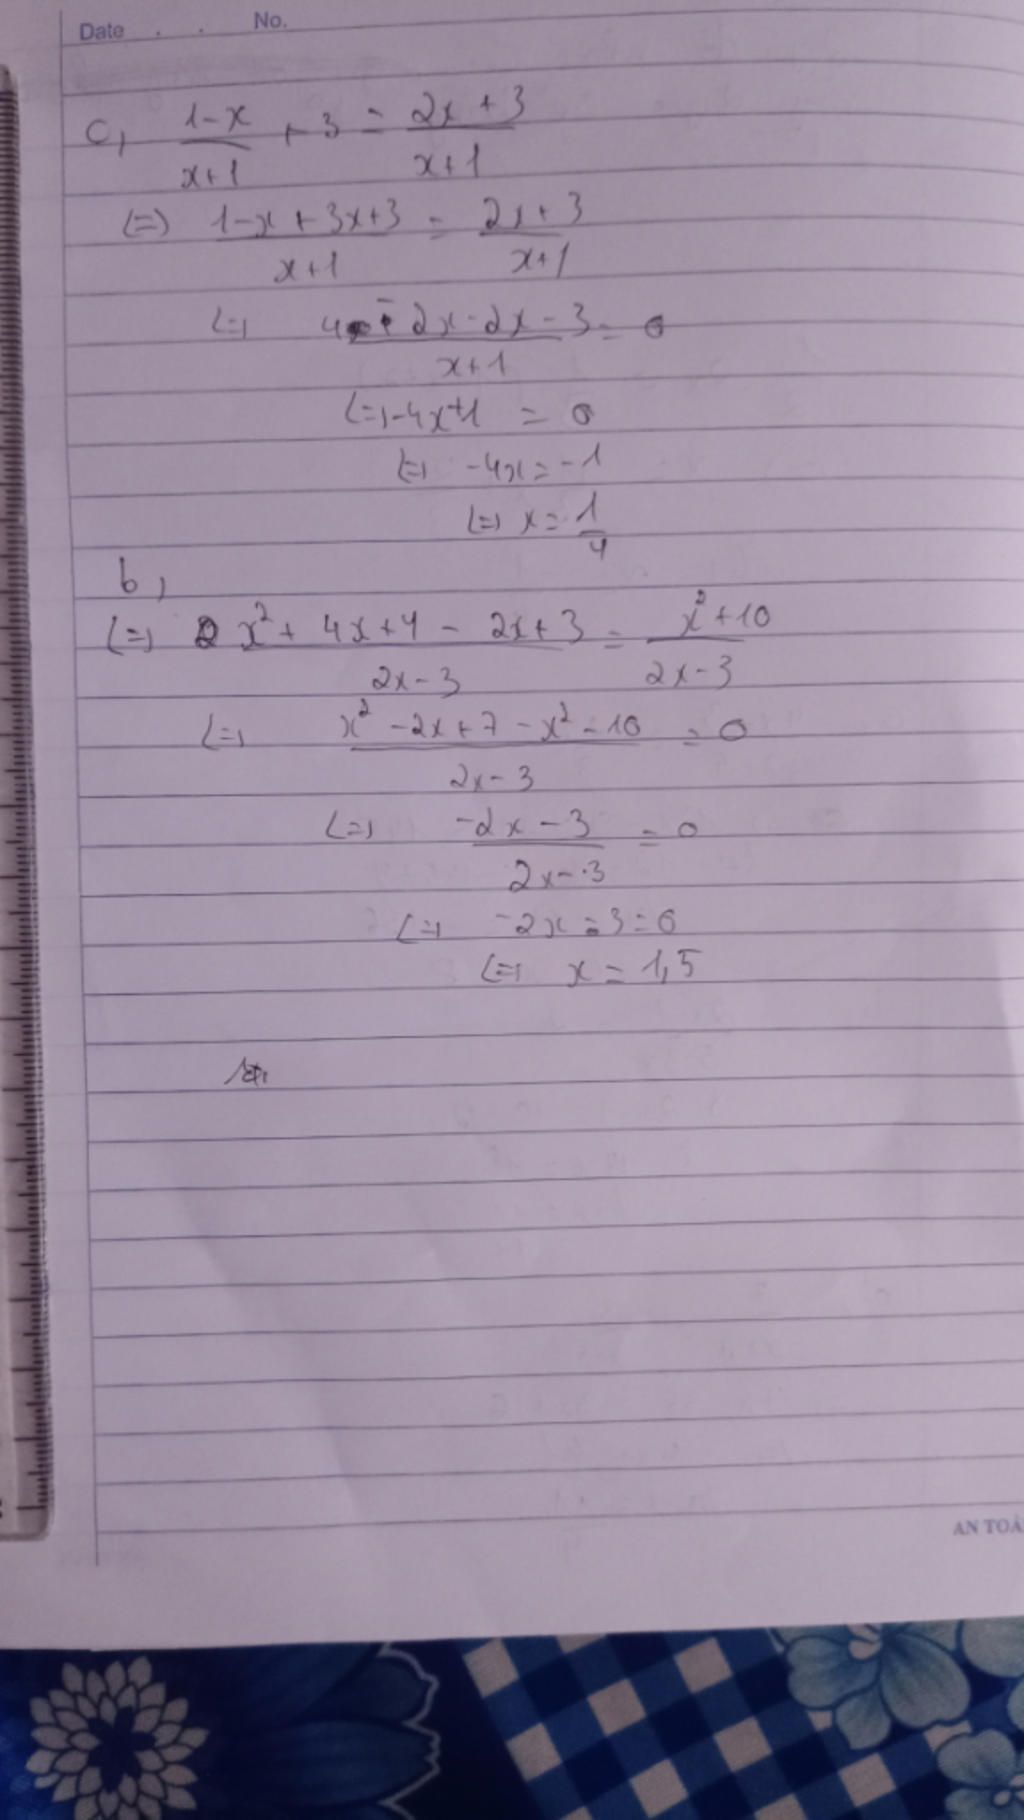 Date . . No.
c, \frac{1-x}{x+1} + 3 = \frac{2x+3}{x+1}
(=) \frac{1-x+3x+3}{x+1} = \frac{2x+3}{x+1}
(=) \frac{4 - 2x-2x-3}{x+1} = 0
(=) -4x+1 = 0
(=) -4x = -1
(=) x = \frac{1}{4}
b,
(=) \frac{x^2+4x+4-2x+3}{2x-3} = \frac{x^2+10}{2x-3}
(=) \frac{x^2-2x+7-x^2-10}{2x-3} = 0
(=) \frac{-2x-3}{2x-3} = 0
(=) -2x = 3 = 0
(=) x = 1,5
AN TOÀ